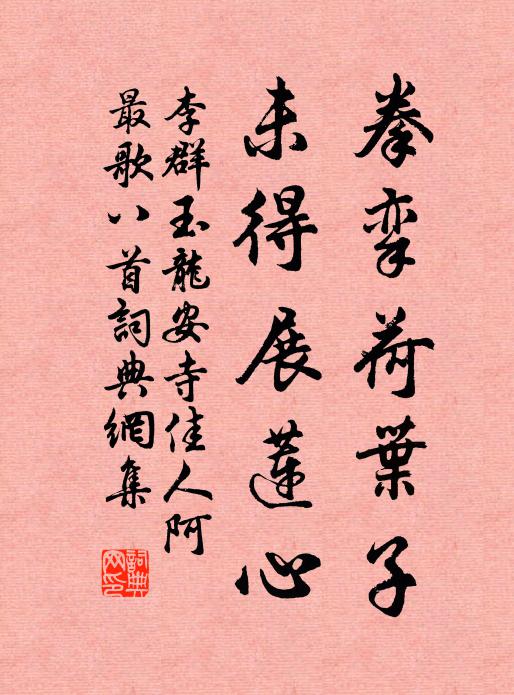 拳挛荷葉子
未得展蓮心
李群玉龍安寺佳人阿
最歌八首詞典網集
詞典
网印